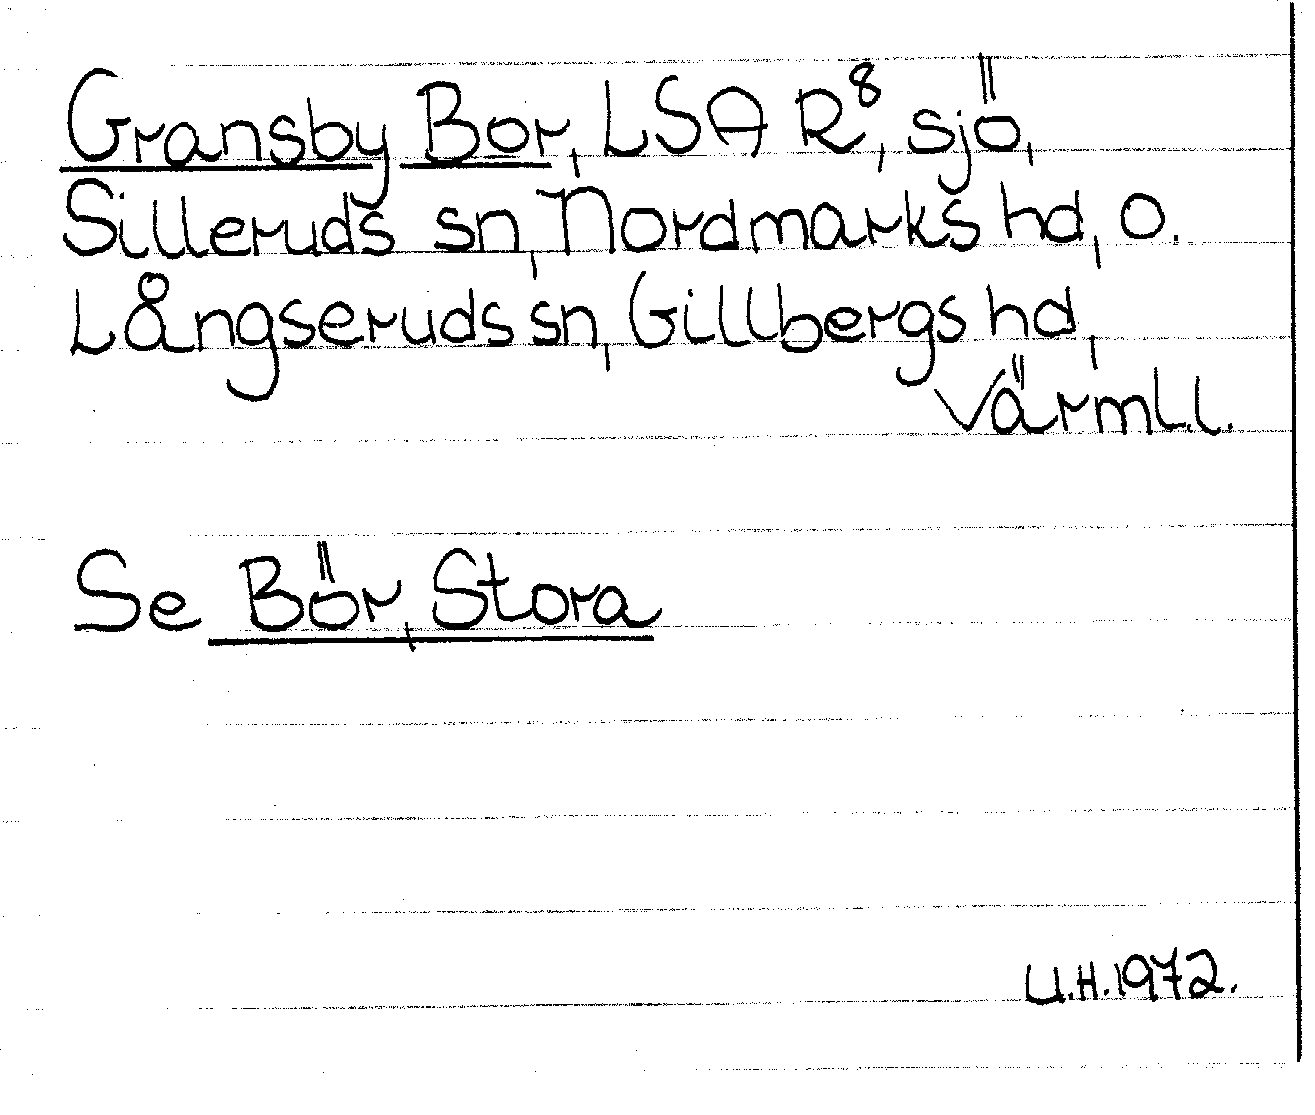 Gransby Bor, LSA R⁸, sjö,
Silleruds sn, Nordmarks hd, o.
Långseruds sn, Gillbergs hd,
Värml.l.
Se Bör, Stora
U.H.1972.